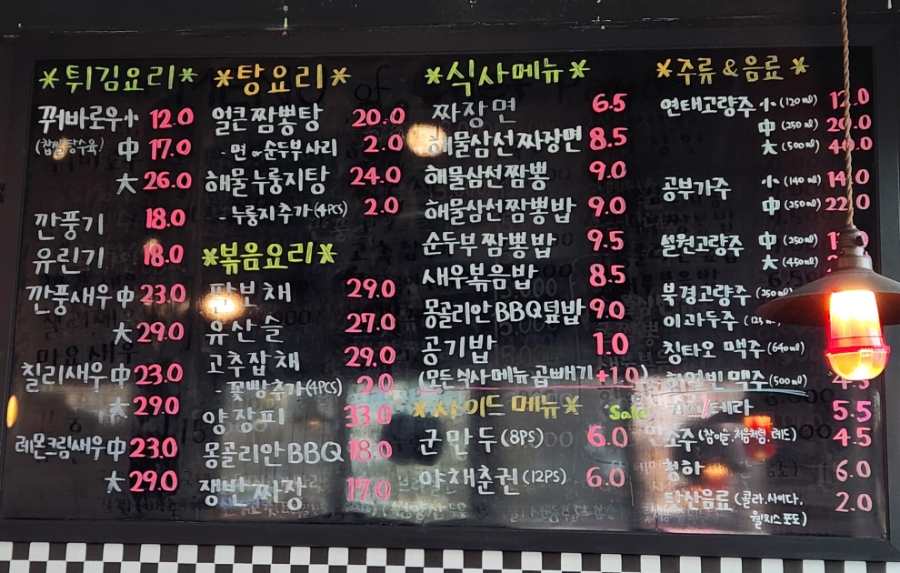 *튀김요리*
꿔바로우 小 12.0
(찹쌀탕수육) 中 17.0
大 26.0
깐풍기 18.0
유린기 18.0
깐풍새우 中 23.0
大 29.0
칠리새우 中 23.0
大 29.0
레몬크림새우 中 23.0
大 29.0
*탕요리*
얼큰짬뽕탕 20.0
- 면 or 순두부사리 2.0
해물누룽지탕 24.0
- 누룽지추가(4PCS) 2.0
*볶음요리*
팔보채 29.0
유산슬 27.0
고추잡채 29.0
- 꽃빵추가(4PCS) 2.0
양장피 33.0
몽골리안BBQ 18.0
쟁반짜장 17.0
*식사메뉴*
짜장면 6.5
해물삼선짜장면 8.5
해물삼선짬뽕 9.0
해물삼선짬뽕밥 9.0
순두부짬뽕밥 9.5
새우볶음밥 8.5
몽골리안BBQ덮밥 9.0
공기밥 1.0
(모든식사메뉴 곱빼기 +1.0)
*사이드 메뉴* Sale
군만두(8PS) 6.0
야채춘권(12PS) 6.0
*주류 & 음료*
연태고량주 小 (120㎖) 12.0
中 (250㎖) 20.0
大 (500㎖) 40.0
공부가주 小 (140㎖) 14.0
中 (250㎖) 22.0
설원고량주 中 (250㎖)
大 (450㎖)
북경고량주
이과두주
칭따오 맥주 (640㎖)
하얼빈 맥주 (500㎖)
카스/테라 5.5
소주 (참이슬, 처음처럼, 레드) 4.5
청하 6.0
탄산음료 (콜라, 사이다, 2.0
웰치스 포도)